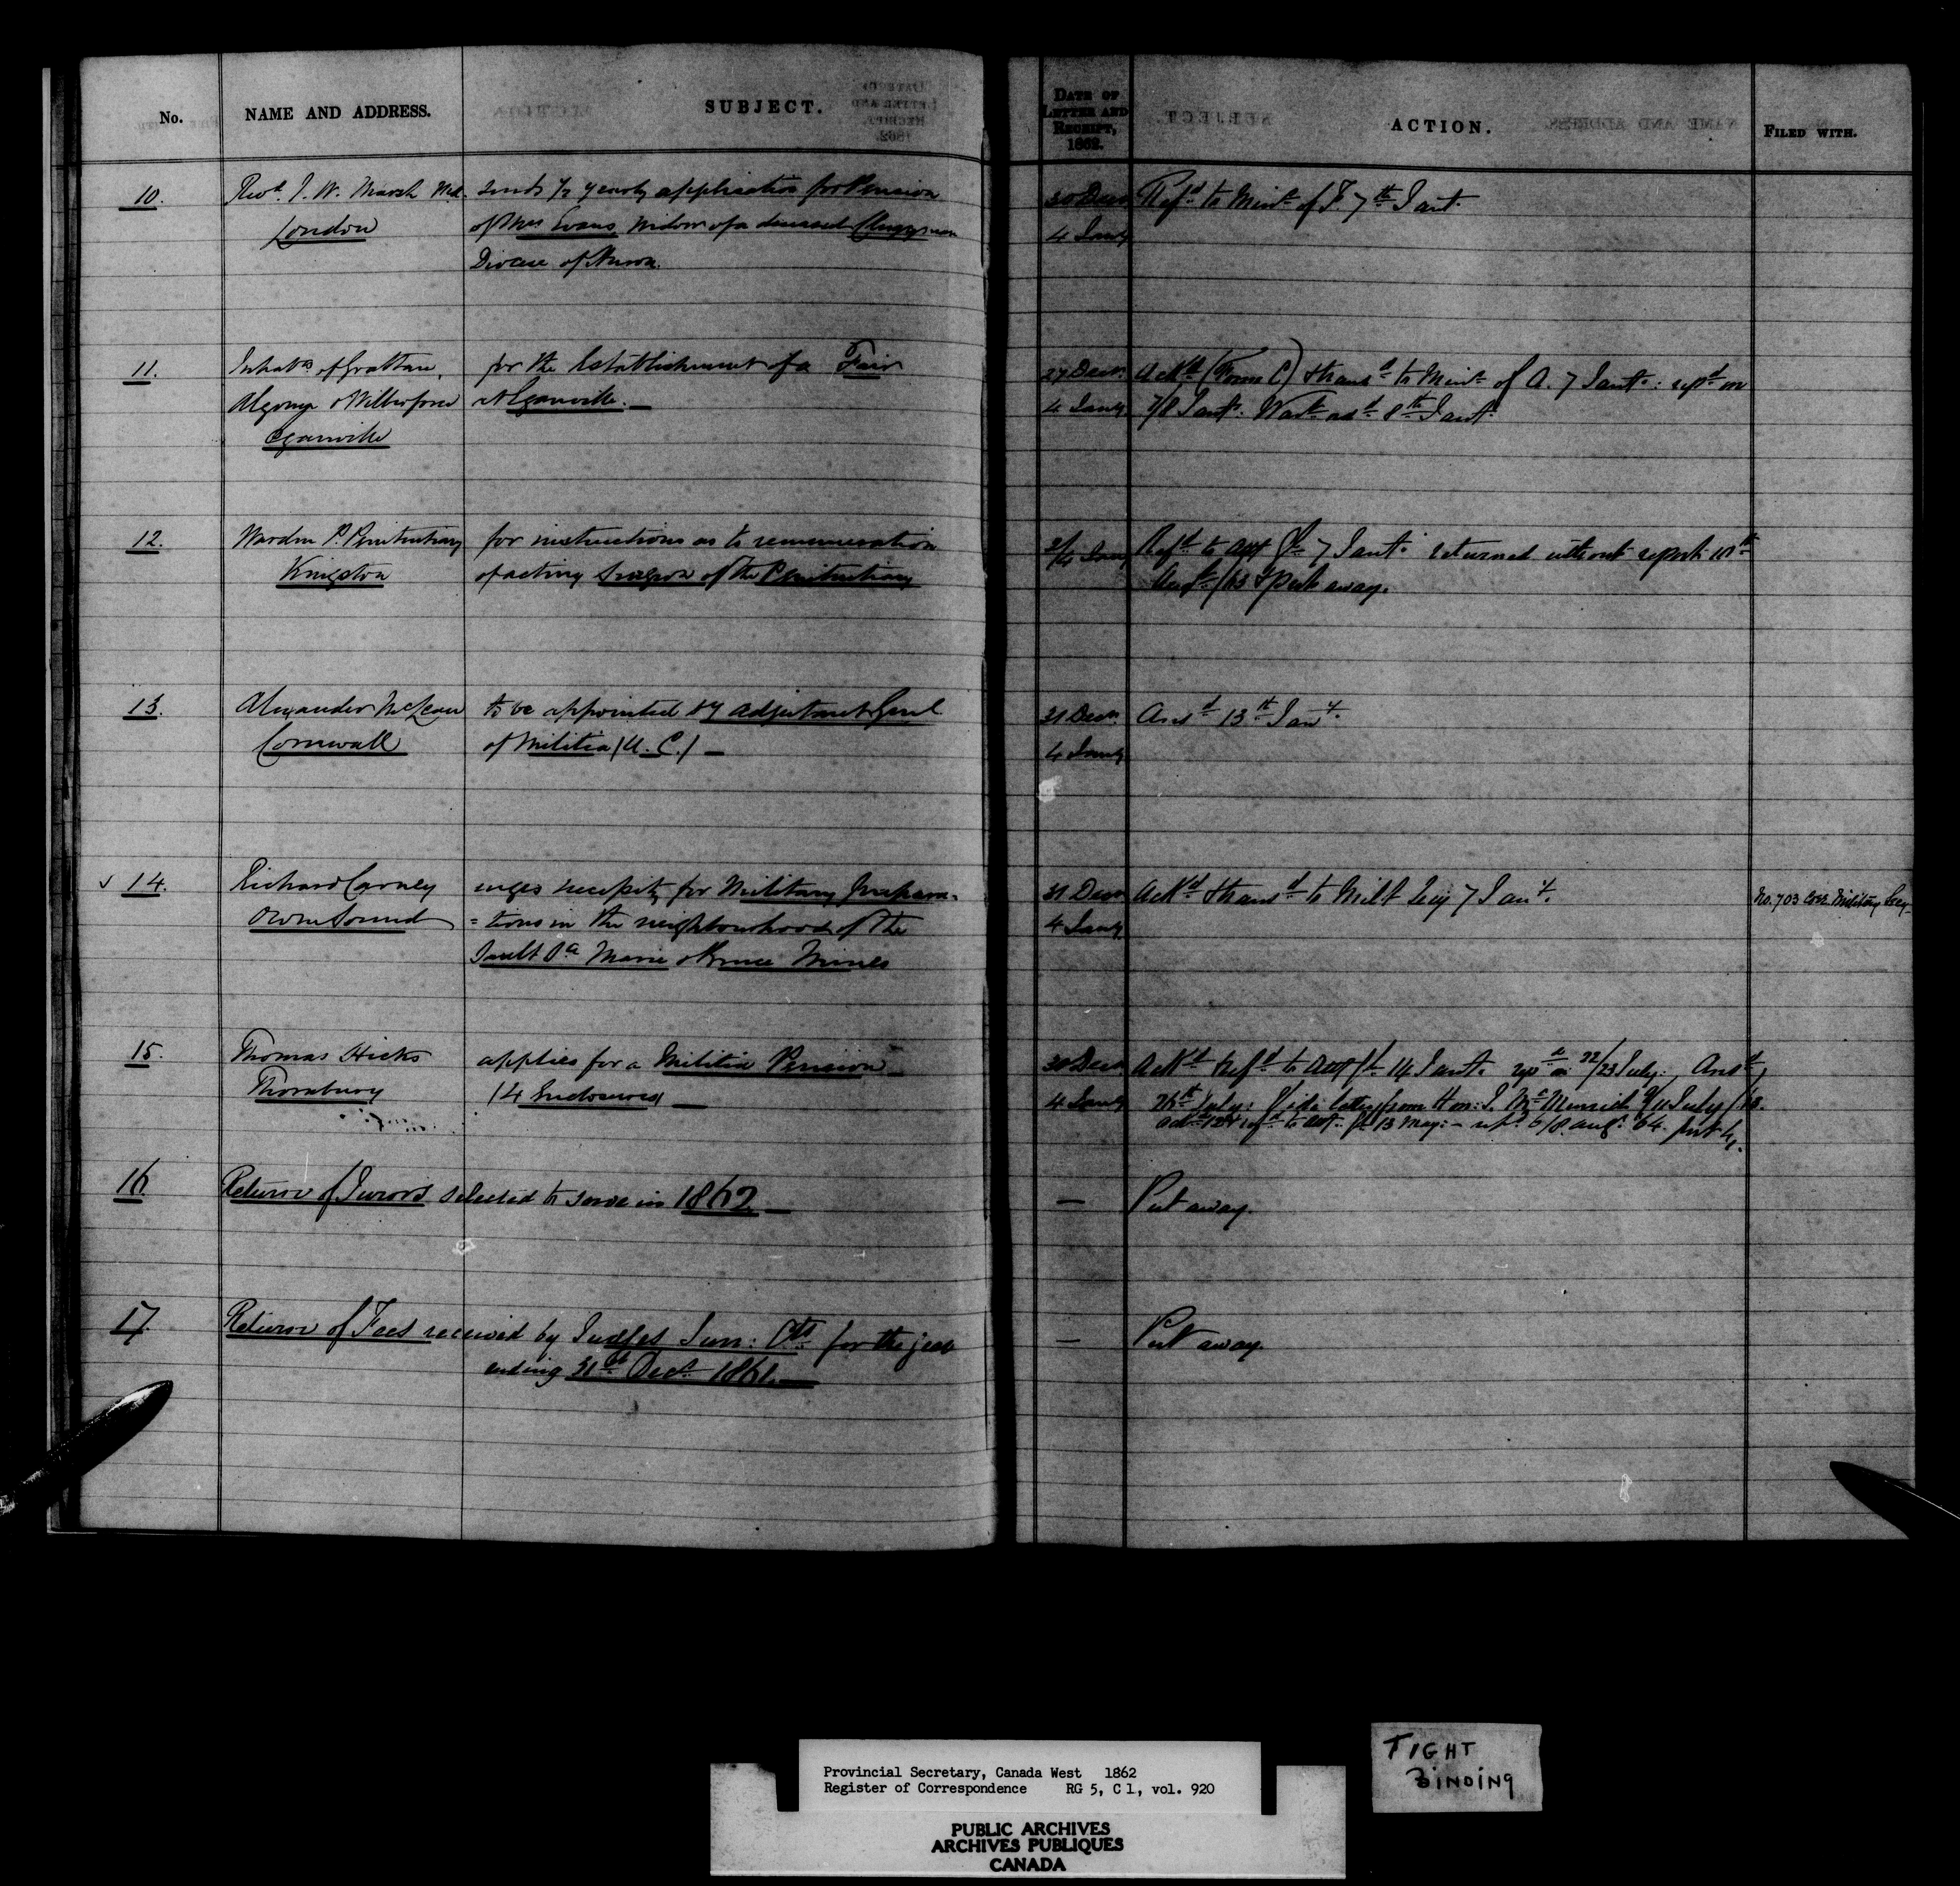 No. NAME AND ADDRESS. SUBJECT. DATE OF LETTER AND RECEIPT, 1862. ACTION. FILED WITH.
10. Revd. J. W. Marsh M.A. sends ½ yearly application for Pension 30 Decr Refd to Minr of F. 7th Jany.
London of Mrs Evans, widow of a deceased Clergyman 4 Jany
Diocese of Huron.
11. Inhabts of Grattan, for the Establishment of a Fair 27 Decr Ackd (Form C) & transd to Minr of A. 7 Jany: repd on
Algona & Wilberforce at Eganville. — 4 Jany 7/8 Jany. 8th Jany.
Eganville
12. Warden P. Penitentiary for instructions as to remuneration 2/4 Jany Refd to 7 Jany. returned without report 10th
Kingston of acting Surgeon of the Penitentiary Augt /63 & put away.
13. Alexander McLean to be appointed Dy Adjutant Genl 31 Decr. Ansd 13th Jany.
Cornwall of Militia (U. C.) — 4 Jany
14. Richard Carney urges necessity for Military prepara- 31 Decr Ackd & transd to Milt Secy 7 Jany. No. 703 Corr. Military Secy
Owen Sound =tions in the neighbourhood of the 4 Jany
Sault Ste Marie & Bruce Mines
15. Thomas Hicks applies for a Militia Pension — 30 Decr Ackd & Refd to 14 Jany. repd on 22/23 July: Ansd
Thornbury (4 Enclosures) — 4 Jany July: Vide letter from Hon: J. McMurrich of 11 July /63.
refd to 13 May: - aug: 64. put by.
16. Return of Jurors selected to serve in 1862. — — Put away.
17. Return of Fees received by Judges Surr: Cts for the year — Put away.
ending 31st Decr 1861. —
Provincial Secretary, Canada West 1862
Register of Correspondence RG 5, C 1, vol. 920
PUBLIC ARCHIVES
ARCHIVES PUBLIQUES
CANADA
TIGHT
BINDING